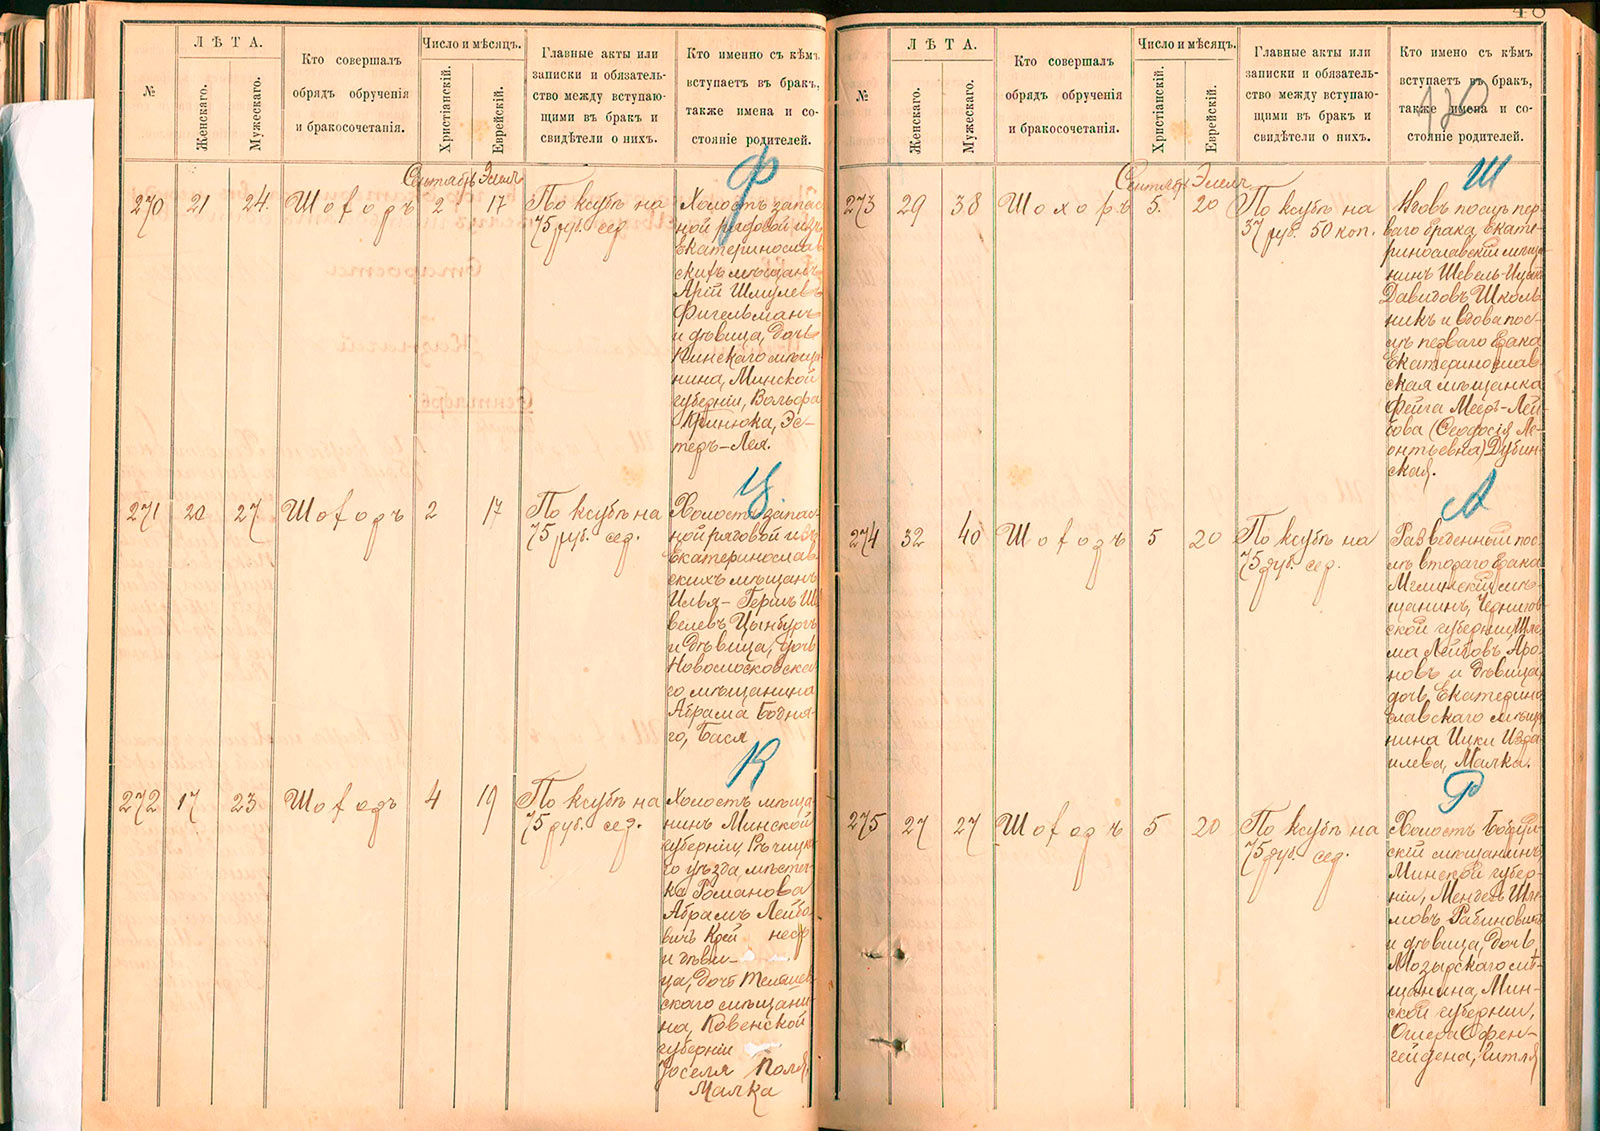 №
ЛѢТА.
Женскаго.
Мужескаго.
Кто совершалъ
обрядъ обрученія
и бракосочетанія.
Число и мѣсяцъ.
Христіанскій.
Еврейскій.
Главные акты или
записки и обязатель-
ство между вступаю-
щими въ бракъ и
свидѣтели о нихъ.
Кто именно съ кѣмъ
вступаетъ въ бракъ,
также имена и со-
стояніе родителей.
Ф
Сентябрь Элелъ
270 21 24. Шохоръ 2 17
По ксубѣ на
75 руб. сер.
Холостъ запас
ной рядовой изъ
Екатеринослав
скихъ мѣщанъ
Арій Шмулевъ
Фигельманъ
и дѣвица, дочь
Пинскаго мѣща
нина, Минской
губерніи, Вольфа
Принюка, Эс-
теръ-Лея.
Ц.
271 20 27 Шохоръ 2 17
По ксубѣ на
75 руб. сер.
Холостъ запас-
ной рядовой изъ
Екатеринослав
скихъ мѣщанъ
Илья-Гершъ Ше
велевъ Цынбургъ
и дѣвица, дочь
Новомосковска
го, мѣщанина
Абрама Бодня-
го, Бася
К
272 17 23 Шохоръ 4 19
По ксубѣ на
75 руб. сер.
Холостъ мѣща
нинъ Минской
губерніи, Рѣчицка
го уѣзда, мѣстеч-
ка Романова
Абрамъ Лейбо
вичъ Крей
и дѣви-
ца, дочь Тельшев
скаго мѣщани-
на, Ковенской
губерніи
Іоселя
Малка
48
№
ЛѢТА.
Женскаго.
Мужескаго.
Кто совершалъ
обрядъ обрученія
и бракосочетанія.
Число и мѣсяцъ.
Христіанскій.
Еврейскій.
Главные акты или
записки и обязатель-
ство между вступаю-
щими въ бракъ и
свидѣтели о нихъ.
Кто имено съ кѣмъ
вступаетъ въ бракъ,
также имена и со-
стояніе родителей.
Ш
Сентябрь Элелъ
273 29 38 Шохоръ 5. 20
По ксубѣ на
37 руб. 50 коп.
Вдовъ послѣ пер
ваго брака, Екате-
ринославскій мѣща
нинъ Шевель-Ицко
Давидовъ Школь
никъ и вдова пос-
лѣ перваго брака
Екатеринослав
ская мѣщанка
Фейга Мееръ-Лей
бова (Феодосія Ле
онтьевна) Дубин-
ская.
А
274 32 40 Шохоръ 5 20
По ксубѣ на
75 руб. сер.
Разведенный пос
лѣ втораго брака
Мглинскій мѣ-
щанинъ, Чернигов
ской губерніи Шле
ма Лейбовъ Аро
новъ и дѣвица,
дочь, Екатерино
славскаго мѣща
нина Ицки Изра
илева, Малка.
Р
275 27 27 Шохоръ 5 20
По ксубѣ на
75 руб. сер.
Холостъ Бобруй-
скій мѣщанинъ,
Минской губер-
ніи, Мендель Шле
мовъ Рабиновичъ
и дѣвица, дочь,
Мозырскаго мѣ-
щанина, Мин-
ской губерніи,
Ошера Офен-
гейдена, Гитля